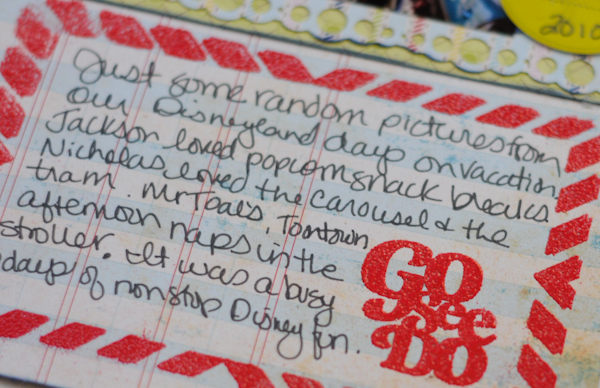 2010
Just some random pictures from
our Disneyland days on vacation.
Jackson loved popcorn snack breaks
Nicholas loved the carousel & the
tram. Mr Toads, Toontown
afternoon naps in the
stroller. It was a busy
days of nonstop Disney fun.
GO
see
DO